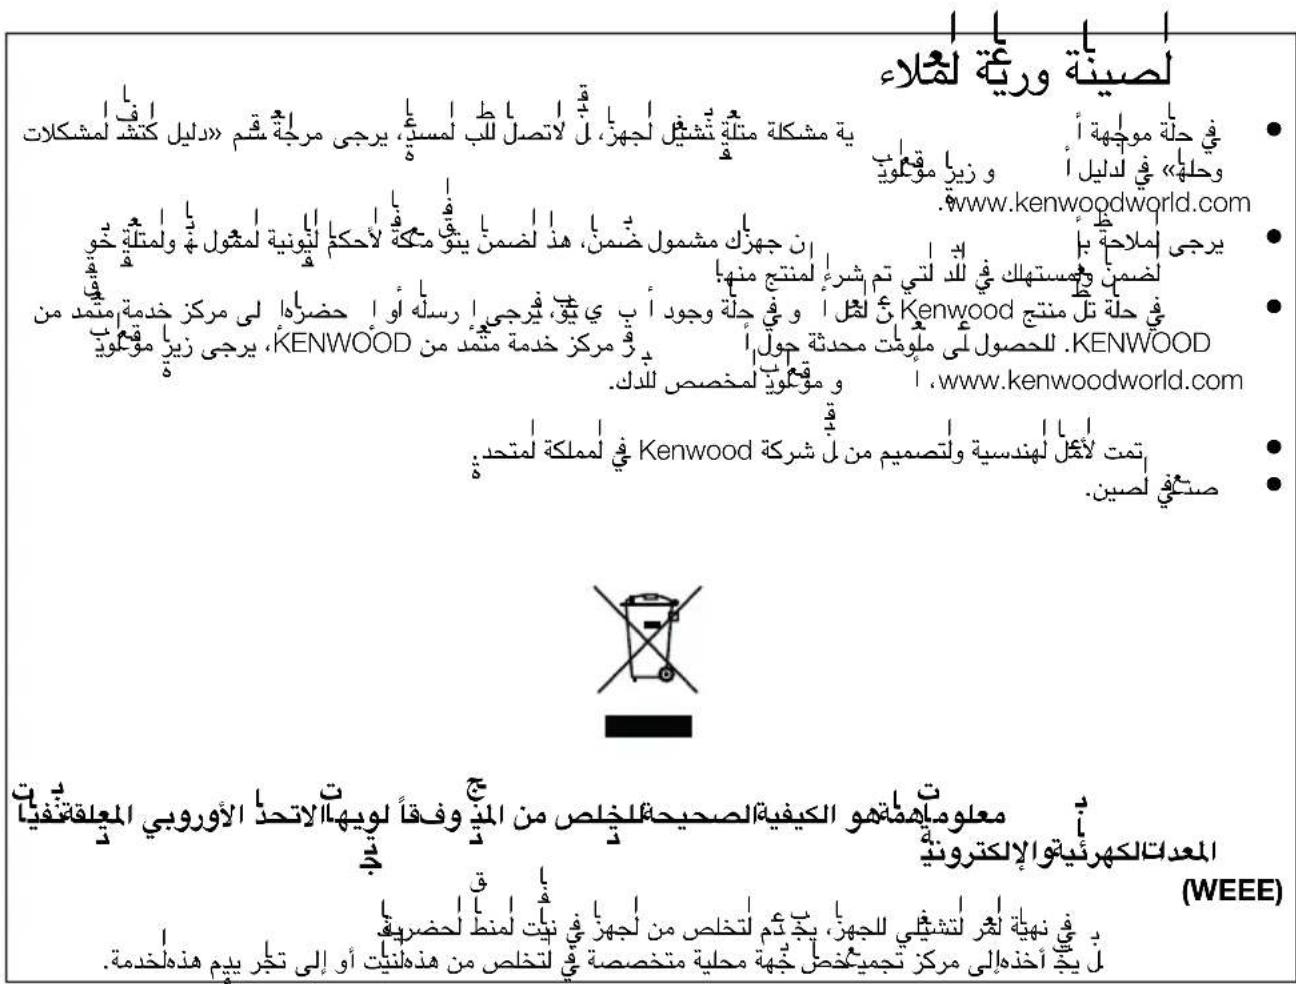 الصيانة ورعاية العملاء
● في حالة مواجهة أية مشكلة متعلقة بتشغيل الجهاز، قبل الاتصال لطلب المساعدة، يرجى مراجعة قسم «دليل اكتشاف المشكلات
وحلها» في الدليل أو زيارة موقع الويب
www.kenwoodworld.com.
● يرجى الملاحظة بأن جهازك مشمول بضمان، هذا الضمان يتوافق مع كافة الأحكام القانونية المعمول بها والمتعلقة بحقوق
الضمان والمستهلك في البلد التي تم شراء المنتج منها.
● في حالة تعطل منتج Kenwood عن العمل أو في حالة وجود أي عيوب، فيرجى إرساله أو إحضاره إلى مركز خدمة معتمد من
KENWOOD. للحصول على معلومات محدثة حول أقرب مركز خدمة معتمد من KENWOOD، يرجى زيارة موقع الويب
www.kenwoodworld.com، أو موقع الويب المخصص لبلدك.
● تمت الأعمال الهندسية والتصميم من قبل شركة Kenwood في المملكة المتحدة.
● صنع في الصين.
معلومات هامة هو الكيفية الصحيحة للتخلص من المنتج وفقاً لتوجيهات الاتحاد الأوروبي المتعلقة بنفايات
المعدات الكهربائية والإلكترونية
(WEEE)
في نهاية العمر التشغيلي للجهاز، يجب عدم التخلص من الجهاز في نفايات المناطق الحضرية.
بل يجب أخذه إلى مركز تجميع خاص بجهة محلية متخصصة في التخلص من هذه النفايات أو إلى تاجر يقدم هذه الخدمة.